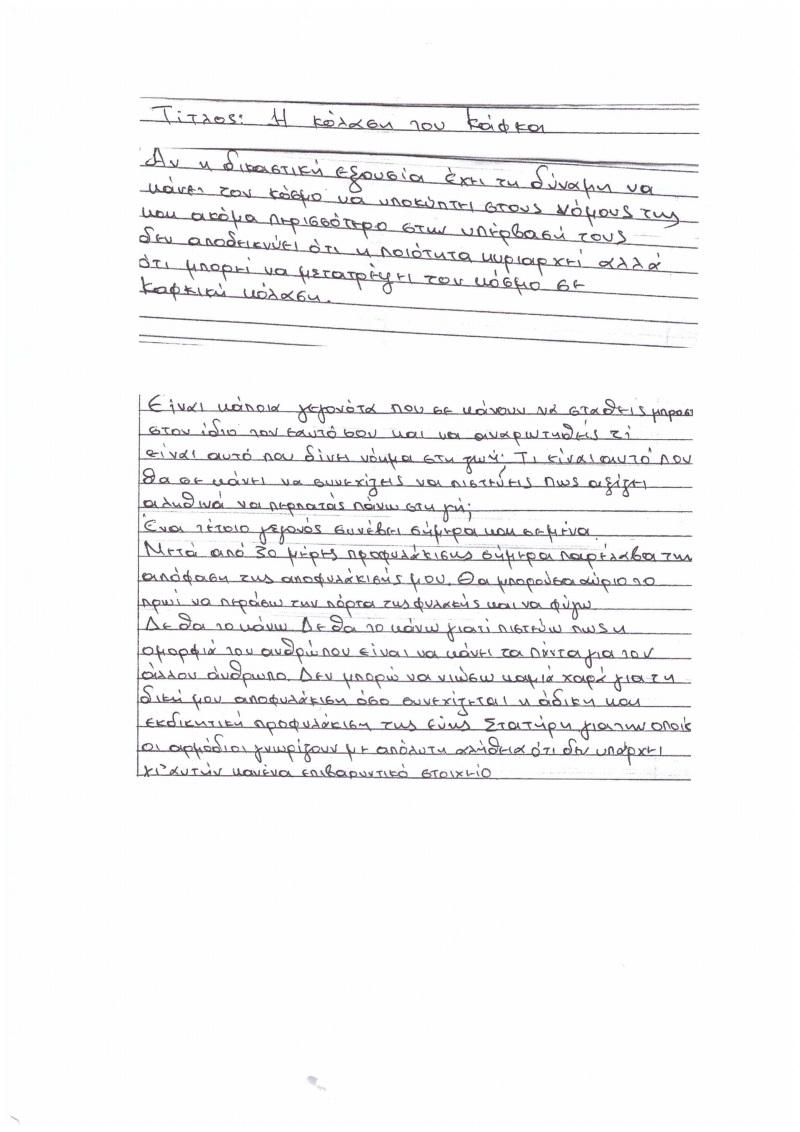 Τίτλος: Η κόλαση του Κάφκα
Αν η δικαστική εξουσία έχει τη δύναμη να
κάνει τον κόσμο να υποκύπτει στους νόμους της
και ακόμα περισσότερο στην υπέρβασή τους
δεν αποδεικνύει ότι η ποιότητα κυριαρχεί αλλά
ότι μπορεί να μετατρέψει τον κόσμο σε
Καφκική κόλαση.
Είναι κάποια γεγονότα που σε κάνουν να σταθείς μπροσ
στον ίδιο τον εαυτό σου και να αναρωτηθείς τί
είναι αυτό που δίνει νόημα στη ζωή; Τι είναι αυτό που
θα σε κάνει να συνεχίζεις να πιστεύεις πως αξίζει
αληθινά να περπατάς πάνω στη γή;
Ένα τέτοιο γεγονός συνέβει σήμερα και σε μένα.
Μετά από 30 μέρες προφυλάκισης σήμερα παρέλαβα της
απόφαση της αποφυλάκισής μου. Θα μπορούσα αύριο το
πρωί να περάσω την πόρτα της φυλακής και να φύγω.
Δε θα το κάνω. Δε θα το κάνω γιατί πιστεύω πως η
ομορφιά του ανθρώπου είναι να κάνει τα πάντα για τον
άλλον άνθρωπο. Δεν μπορώ να νιώσω καμιά χαρά για τη
δική μου αποφυλάκιση όσο συνεχίζεται η άδικη και
εκδικητική προφυλάκιση της Εύης Στατήρη για την οποία
οι αρμόδιοι γνωρίζουν με απόλυτη αλήθεια ότι δεν υπάρχει
γι' αυτήν κανένα επιβαρυντικό στοιχείο